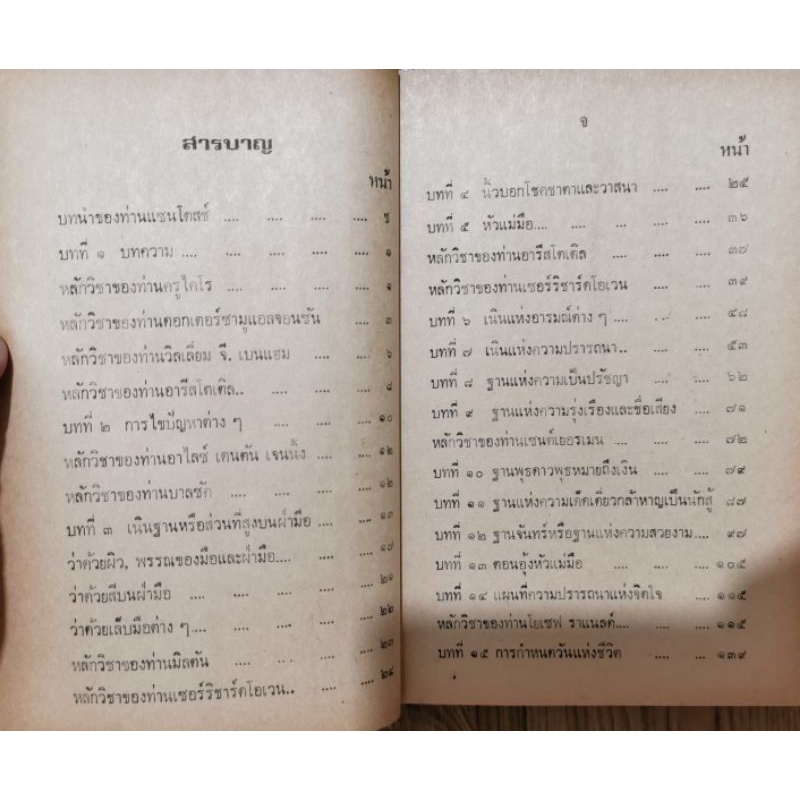 สารบาญ
หน้า
บทนำของท่านแซนโตสซ์ .... .... .... .... ช
บทที่ ๑ บทความ .... .... .... .... .... ๑
หลักวิชาของท่านครูไคโร .... .... .... .... ๑
หลักวิชาของท่านดอกเตอร์ซามูแอลจอนซัน .... ๓
หลักวิชาของท่านวิลเลี่ยม จี. เบนแฮม .... .... ๖
หลักวิชาของท่านอารีสโตเติล.. .... .... .... ๘
บทที่ ๒ การไขปัญหาต่าง ๆ .... .... .... ๑๐
หลักวิชาของท่านอาไลซ์ เดนตัน เจนนิ่ง .... .... ๑๒
หลักวิชาของท่านบาลซัค .... .... .... .... ๑๒
บทที่ ๓ เนินฐานหรือส่วนที่สูงบนฝ่ามือ .... .... ๑๓
ว่าด้วยผิว, พรรณของมือและฝ่ามือ.... .... .... ๑๗
ว่าด้วยสีบนฝ่ามือ .... .... .... .... ๒๑
ว่าด้วยเล็บมือต่าง ๆ.... .... .... .... ๒๒
หลักวิชาของท่านมิลตัน .... .... .... .... ๒๓
หลักวิชาของท่านเซอร์ริชาร์ดโอเวน.. .... .... ๒๔
จ
หน้า
บทที่ ๔ นิ้วบอกโชคชาตาและวาสนา .... .... ๒๕
บทที่ ๕ หัวแม่มือ.... .... ... .... .... ๓๖
หลักวิชาของท่านอารีสโตเติล .... .... .... ๓๗
หลักวิชาของท่านเซอร์ริชาร์ดโอเวน .... .... ๓๙
บทที่ ๖ เนินแห่งอารมณ์ต่าง ๆ .... .... .... ๔๘
บทที่ ๗ เนินแห่งความปรารถนา.. .... .... ๕๓
บทที่ ๘ ฐานแห่งความเป็นปรัชญา .... .... ๖๒
บทที่ ๙ ฐานแห่งความรุ่งเรืองและชื่อเสียง .... ๗๑
หลักวิชาของท่านเซนต์เยอรเมน .... .... .... ๗๒
บทที่ ๑๐ ฐานพุธดาวพุธหมายถึงเงิน .... .... ๗๙
บทที่ ๑๑ ฐานแห่งความเด็ดเดี่ยวกล้าหาญเป็นนักสู้ ๘๗
บทที่ ๑๒ ฐานจันทร์หรือฐานแห่งความสวยงาม .... ๙๗
บทที่ ๑๓ ตอนอุ้งหัวแม่มือ .... .... .... ๑๐๕
บทที่ ๑๔ แผนที่ความปรารถนาแห่งจิตใจ .... ๑๑๕
หลักวิชาของท่านโยเซฟ ราแนลด์.... .... .... ๑๑๕
บทที่ ๑๕ การกำหนดวันแห่งชีวิต .... .... ๑๓๙